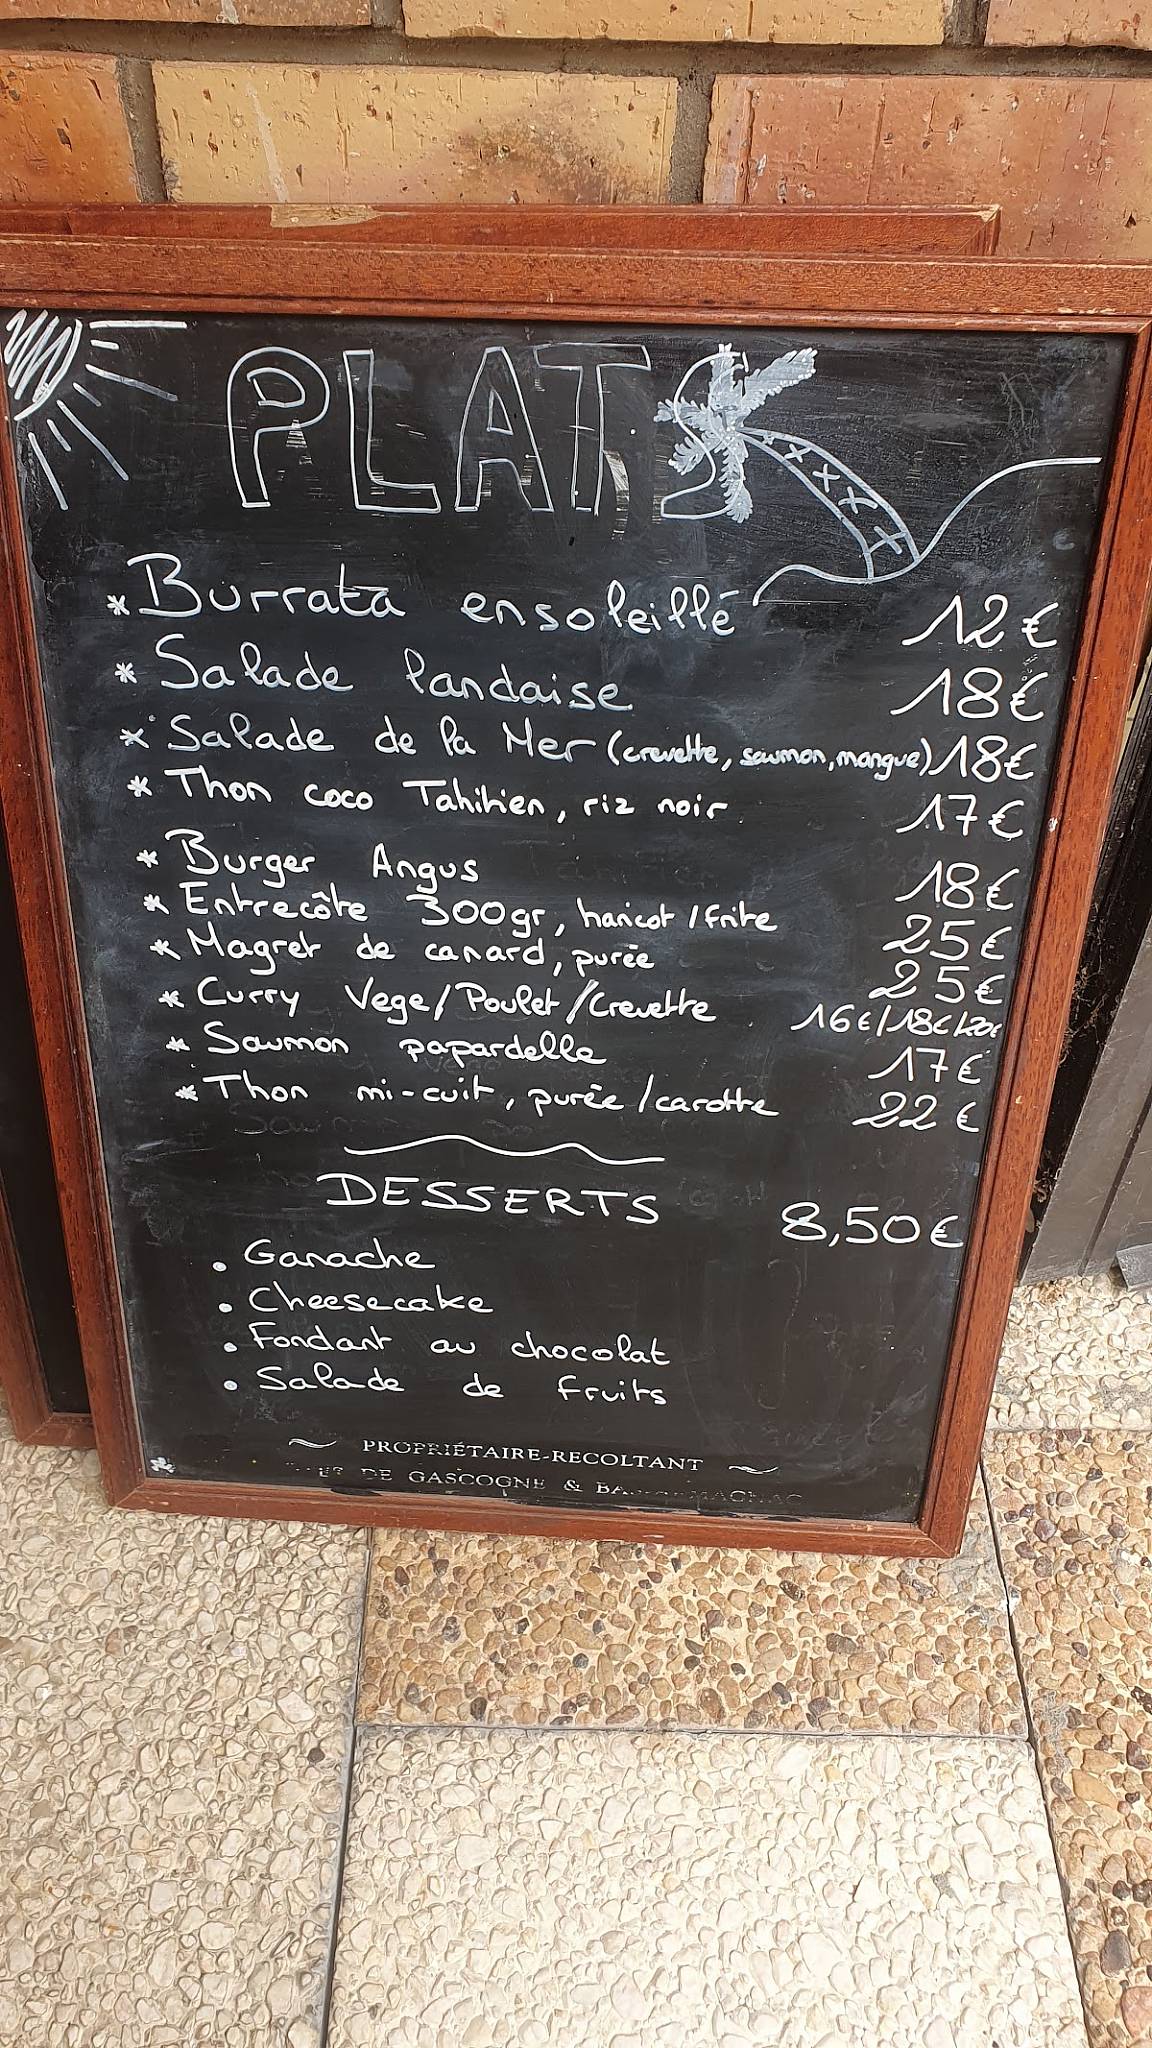 PLATS
* Burrata ensoleillé 12€
* Salade landaise 18€
* Salade de la Mer (crevette, saumon, mangue) 18€
* Thon coco Tahitien, riz noir 17€
* Burger Angus 18€
* Entrecôte 300gr, haricot/frite 25€
* Magret de canard, purée 25€
* Curry Vege/Poulet/Crevette 16€/18€/20€
* Saumon papardelle 17€
* Thon mi-cuit, purée/carotte 22€
DESSERTS 8,50€
• Ganache
• Cheesecake
• Fondant au chocolat
• Salade de fruits
PROPRIÉTAIRE-RECOLTANT
DE GASCOGNE &